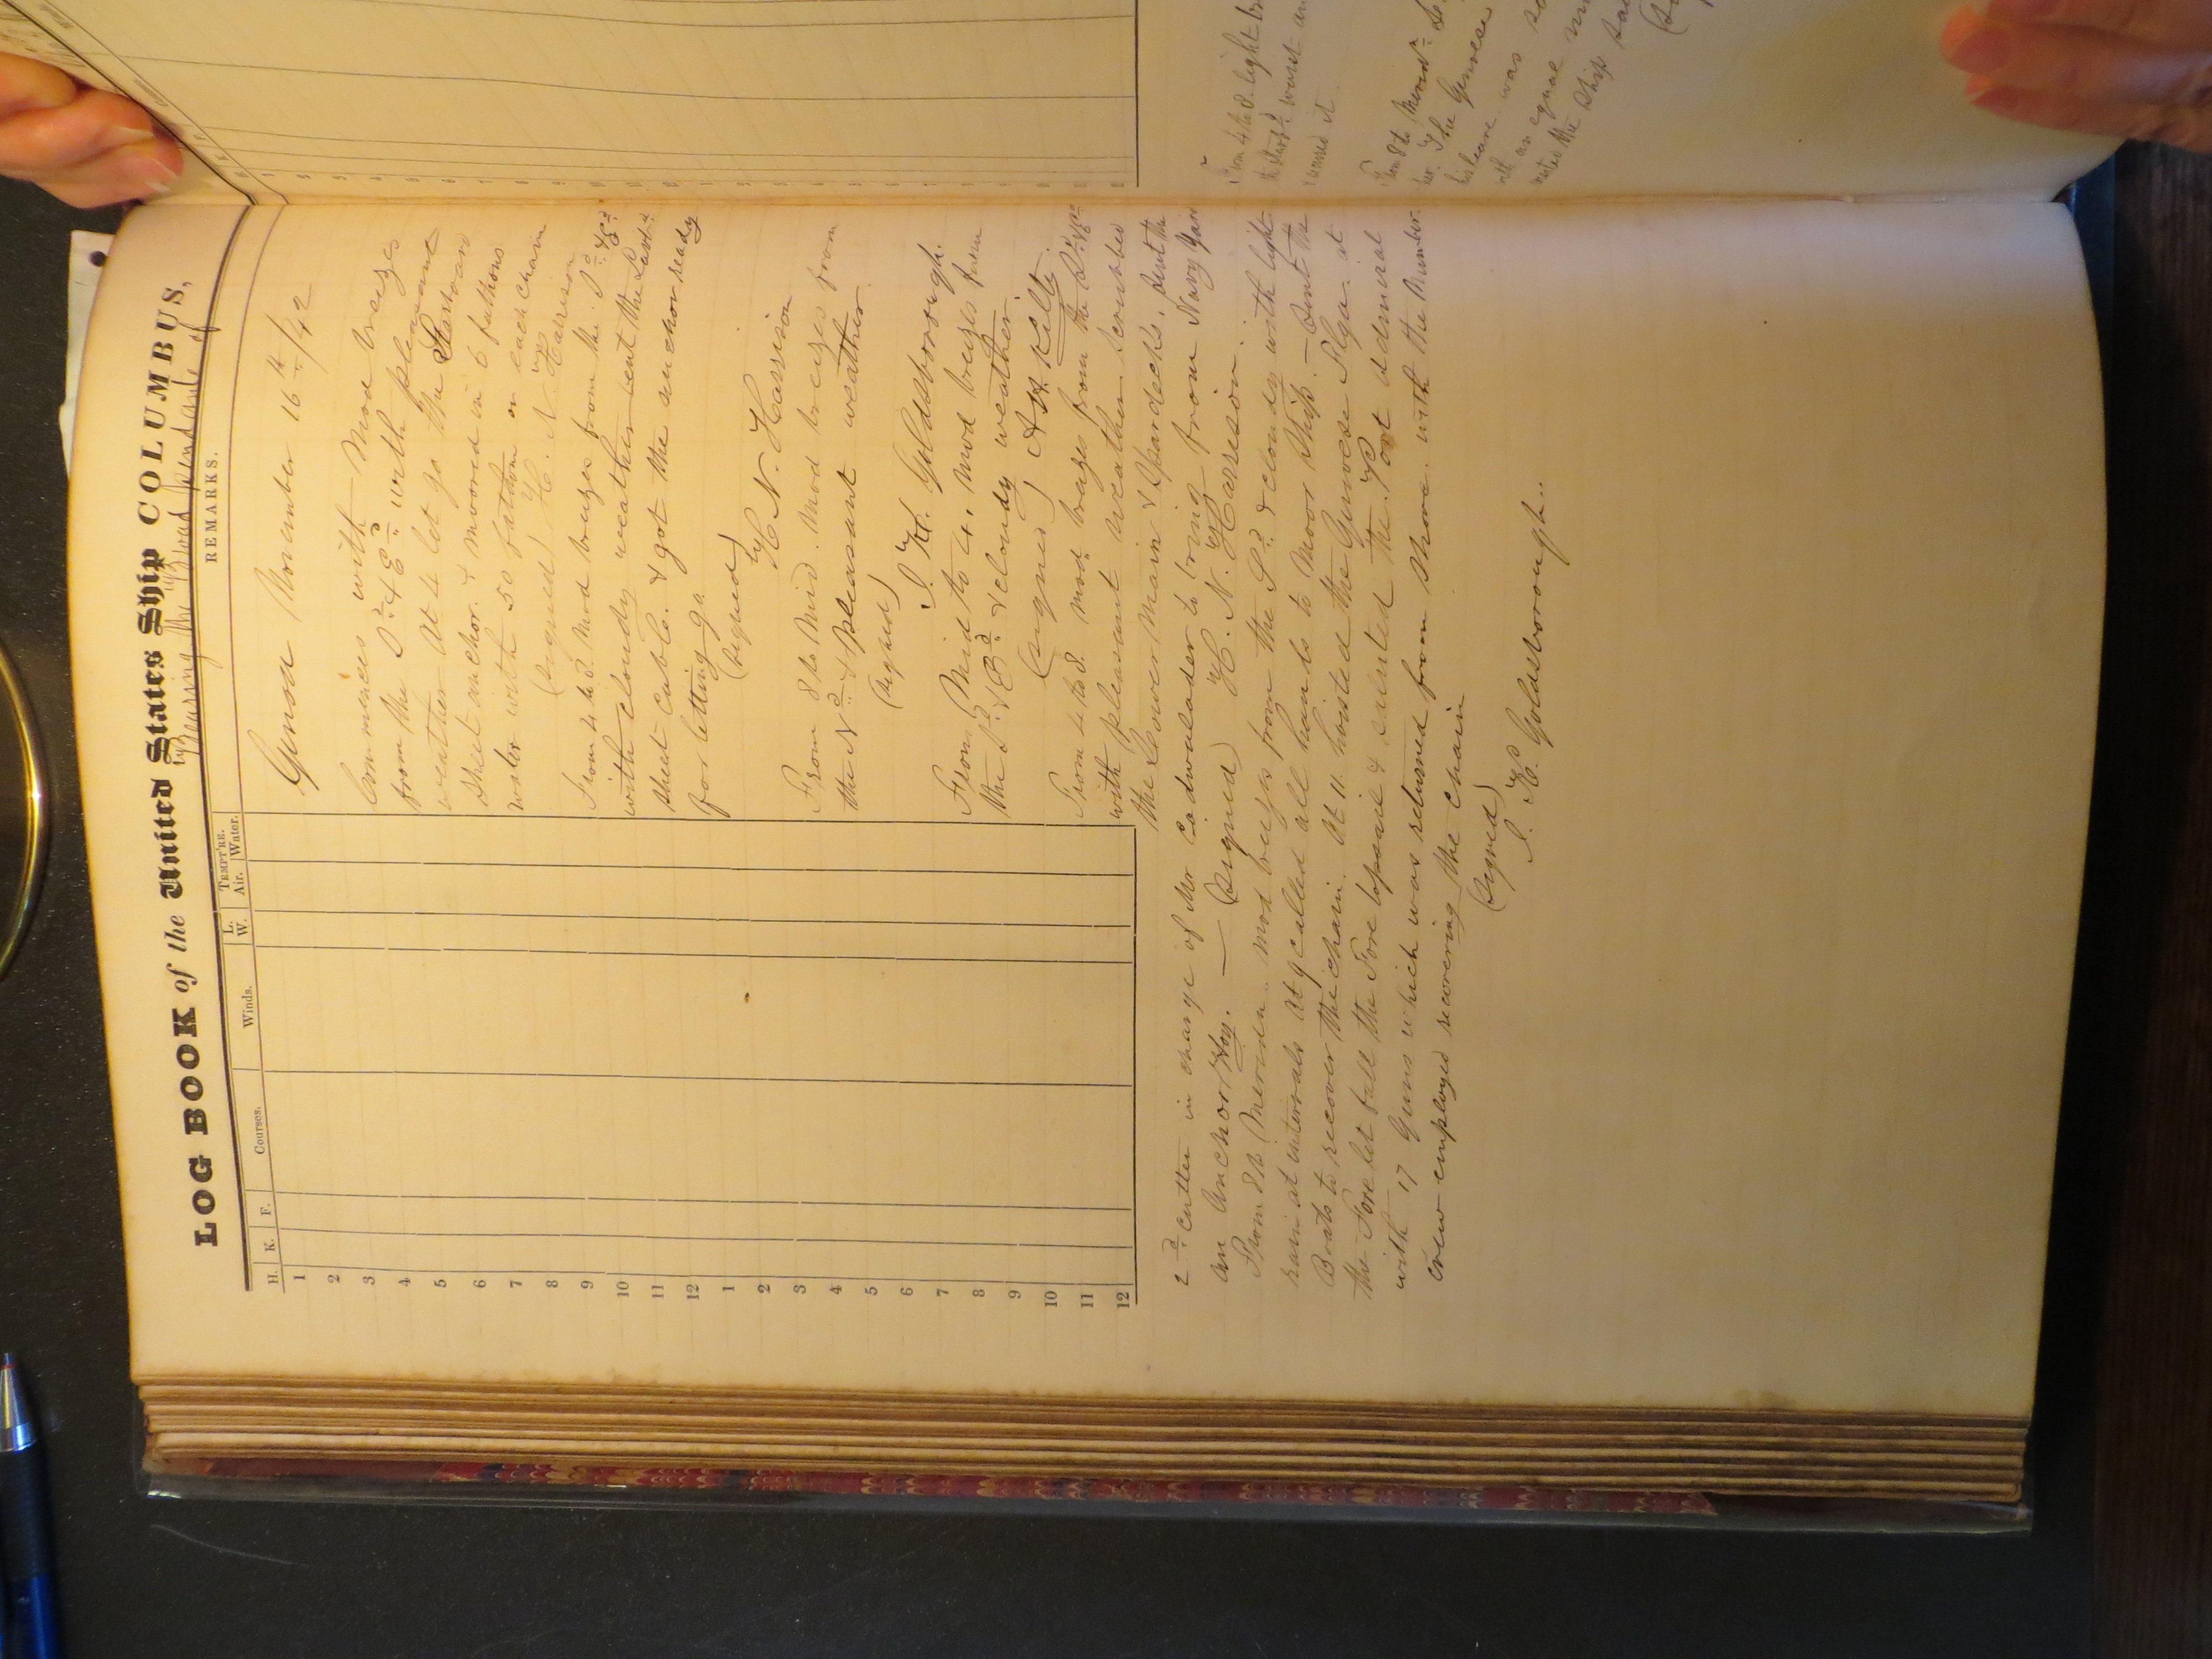 LOG BOOK of the United States Ship COLUMBUS,
Bearing the Broad Pendant of
H. K. F. Courses. Winds. L. W. TEMPT'RE. Air. Water. REMARKS.
1
2
3
4
5
6
7
8
9
10
11
12
1
2
3
4
5
6
7
8
9
10
11
12
Genoa November 16th /42
Commences with Mod breezes
from the Sd & Ed with pleasant
weather At 4 let go the Starboard
Sheet anchor & moored in 6 fathoms
water with 50 fathom on each chain
(Signed) H. N. Harrison
From 4 to 8. Mod breezes from the Sd & Ed
with cloudy weather bent the
sheet cable. & got the anchor ready
for letting go
(Signed)
H. N. Harrison
From 8 to Mid. Mod breezes from
the Nd & pleasant weather.
(Signed)
J. R. Goldsborough.
From Mid to 4. Mod breezes from
the Sd & Ed & cloudy weather.
(Signed) A H Kilty
From 4 to 8. Mod breezes from the Sd & Ed
with pleasant weather. Scrubbed
the Lower Main & Spar decks. Sent the
2d Cutter in charge of Mr Cadwalader to bring from Navy Yard
an Anchor Hoy. — (Signed) H. N. Harrison.
From 8 to Meridn. Mod breezes from the Sd & cloudy with light
rain at intervals At 9 called all hands to Moor Ship. — Sent the
Boats to recover the chain. At 11 hoisted the Genoese Flag at
the Fore let fall the Fore topsail & saluted the Port Admiral
with 17 Guns which was returned from shore with the Number.
Crew employed recovering the chain
(Signed)
J. R. Goldsborough.
From 4 to 8 light
From 8 to Merid
The Genoese
his leave was
an equal
the Ship